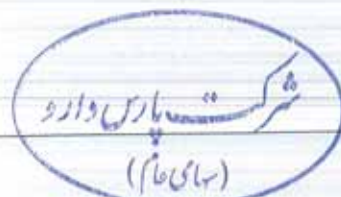 شرکت پارس دارو
(سهامی عام)